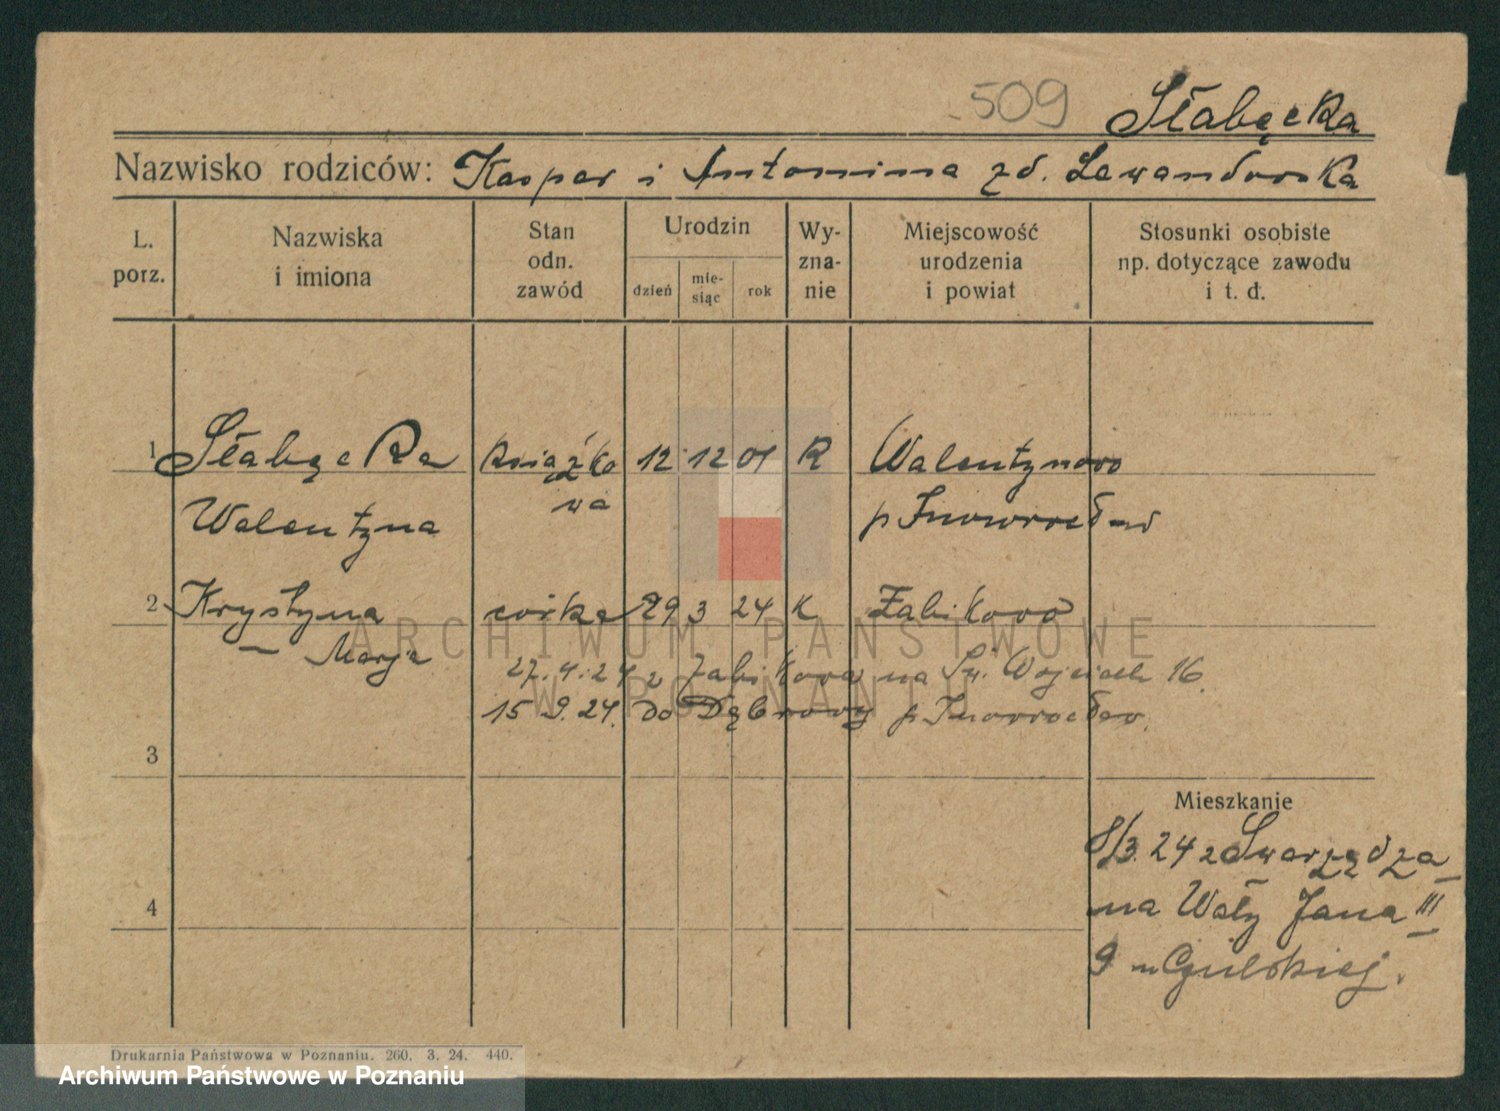 509 Słabęcka
Nazwisko rodziców: Kasper i Antonina zd. Lewandowska
L. porz.
Nazwiska i imiona
Stan odn. zawód
Urodzin
dzień
mie-
siąc
rok
Wy-
zna-
nie
Miejscowość urodzenia i powiat
Stosunki osobiste np. dotyczące zawodu i t. d.
1 Słabęcka książko 12 12 01 R Walentynowo
Walentyna wa p Inowrocław
2 Krystyna córka 29 3 24 K Żabikowo
— Marja
27.4.24 z Żabikowa na Św. Wojciech 16.
15 9.24. do Dąbrowy p Inowrocław.
3
Mieszkanie
8/3.24 z Swarzędza
4
na Wały Jana III
9 u
Drukarnia Państwowa w Poznaniu. 260. 3. 24. 440.
ARCHIWUM PAŃSTWOWE
W POZNANIU
Archiwum Państwowe w Poznaniu